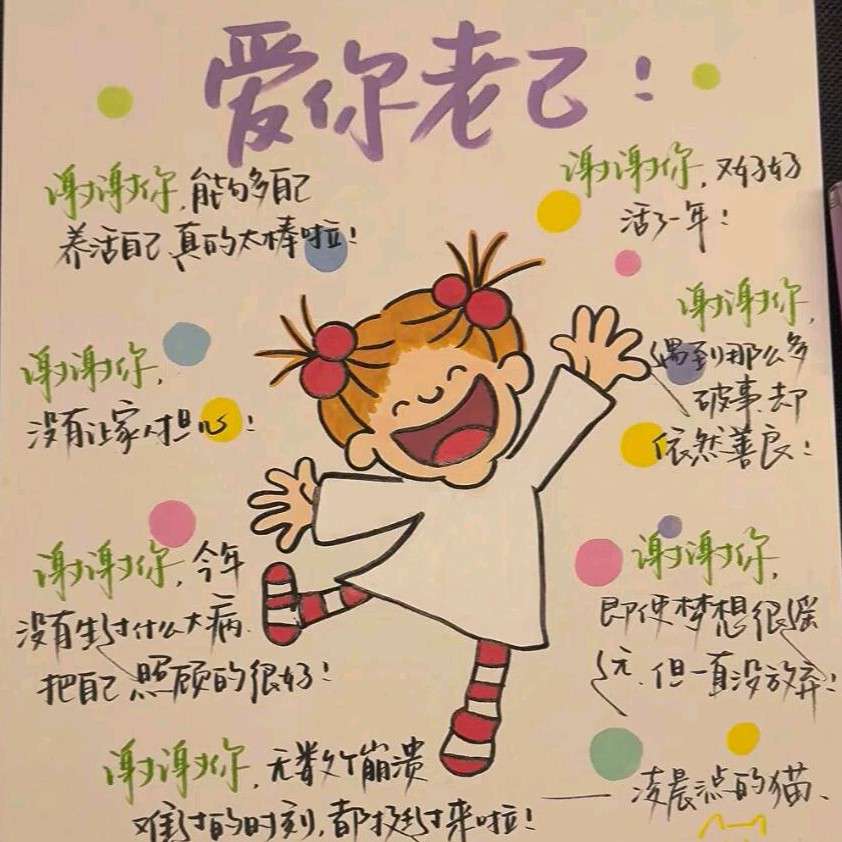 爱你老己！
谢谢你，能够多自己
养活自己，真的太棒啦！
谢谢你，又好好
活了一年！
谢谢你，
没有让家人担心！
谢谢你，
遇到那么多
破事，却
依然善良！
谢谢你，今年
没有生过什么大病，
把自己照顾的很好！
谢谢你，
即使梦想很遥
远，但一直没放弃！
谢谢你，无数个崩溃
难过的时刻，都挺过来啦！
——凌晨点的猫、